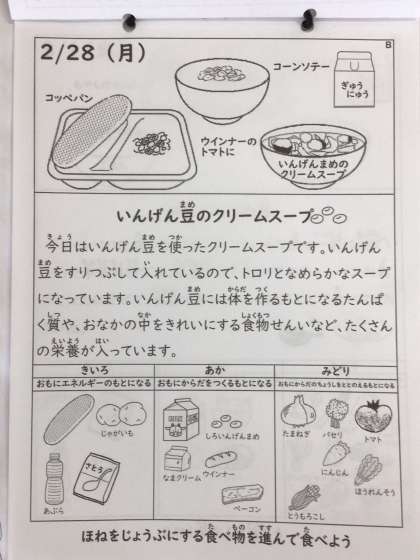 2/28（月）
B
コーンソテー
ぎゅう
にゅう
コッペパン
ウインナーの
トマトに
いんげんまめの
クリームスープ
いんげん豆のクリームスープ
今日はいんげん豆を使ったクリームスープです。いんげん
豆をすりつぶして入れているので、トロリとなめらかなスープ
になっています。いんげん豆には体を作るもとになるたんぱ
く質や、おなかの中をきれいにする食物せんいなど、たくさん
の栄養が入っています。
きいろ
おもにエネルギーのもとになる
じゃがいも
あぶら
さとう
あか
おもにからだをつくるもとになる
しろいんげんまめ
なまクリーム
ウインナー
ベーコン
みどり
おもにからだのちょうしをととのえるもとになる
たまねぎ
パセリ
トマト
にんじん
ほうれんそう
とうもろこし
ほねをじょうぶにする食べ物を進んで食べよう